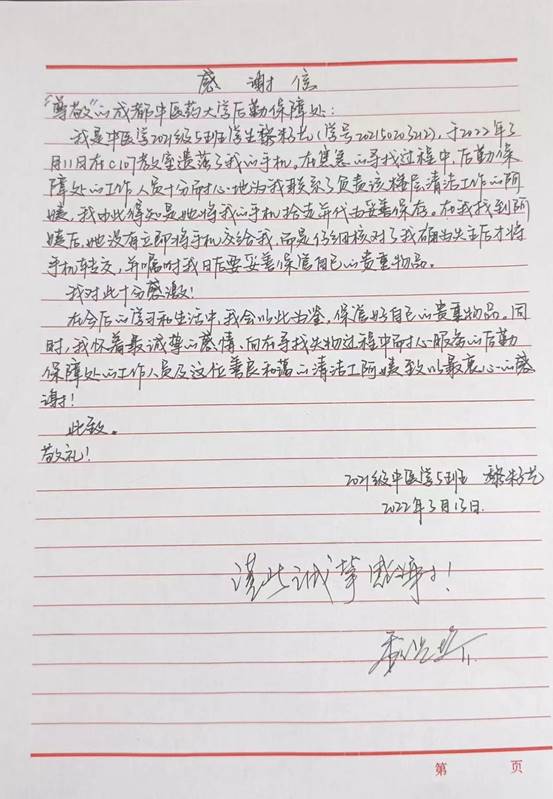 感谢信
"尊敬"的成都中医药大学后勤保障处:
我是中医学2021级5班学生黎籽艺(学号2021502032(2),于2022年3
月11日在C107教室遗落了我的手机,在焦急的寻找过程中,后勤保
障处的工作人员十分耐心地为我联系了负责该楼层清洁工作的阿
姨,我由此得知是她将我的手机拾走并代为妥善保存。在我找到阿
姨后,她没有立即将手机交给我,而是仔细核对了我确为失主后才将
手机转交,并嘱咐我日后要妥善保管自己的贵重物品。
我对此十分感激!
在今后的学习和生活中,我会以此为鉴,保管好自己的贵重物品。同
时,我怀着最诚挚的感情,向在寻找失物过程中耐心服务的后勤
保障处的工作人员及这位善良和蔼的清洁工阿姨致以最衷心的感
谢!
此致。
敬礼!
2021级中医学5班 黎籽艺
2022年3月13日.
谨此诚挚感谢!
第 页